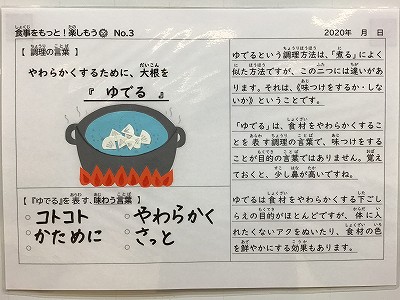 食事をもっと!楽しもう No.3
2020年 月 日
【 調理の言葉 】
やわらかくするために、大根を
『 ゆでる 』
【『ゆでる』を 表す、味わう言葉 】
○ コトコト ○ やわらかく
○ かために ○ さっと
○
ゆでるという調理方法は、「煮る」によく
似た方法ですが、この二つには違いがあ
ります。それは、《味つけをするか・しな
いか》ということです。
「ゆでる」は、食材をやわらかくするこ
とを 表す調理の言葉で、味つけをする
ことが目的の言葉ではありません。覚え
ておくと、少し鼻が高いですね。
ゆでるは食材をやわらかくする下ごし
らえの目的がほとんどですが、体に入
れたくないアクをぬいたり、食材の色
を鮮やかにする効果もあります。